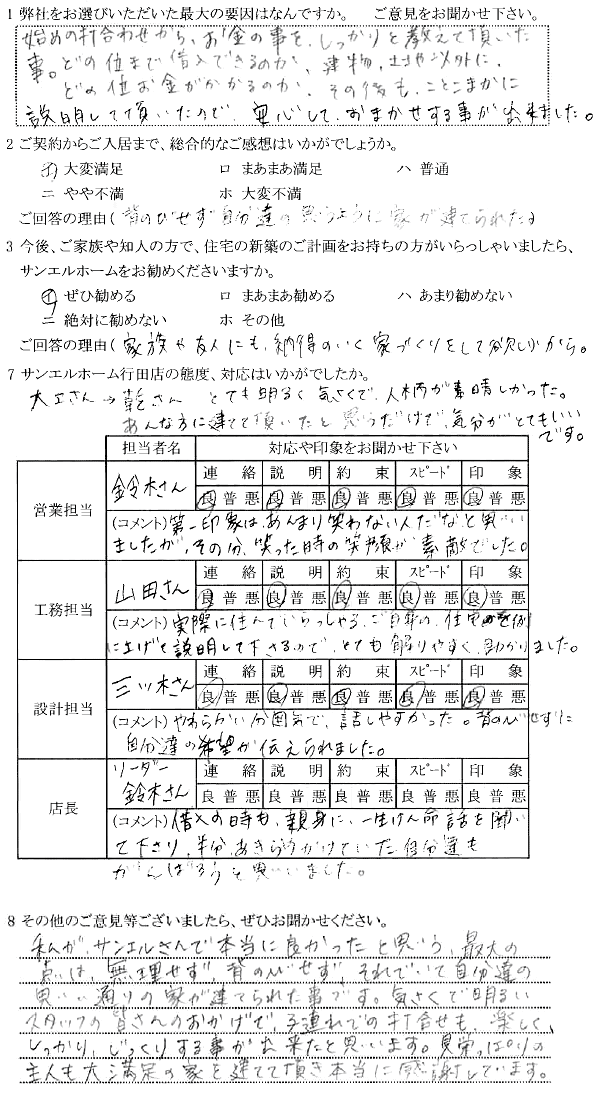 1 弊社をお選びいただいた最大の要因はなんですか。 ご意見をお聞かせ下さい。
始めの打合わせから、お金の事を、しっかりと教えて頂いた
事。どの位まで借入できるのか、建物、土地以外に、
どの位お金がかかるのか、その後も、ことこまかに
説明して頂いたので、安心して、おまかせする事が出来ました。
2 ご契約からご入居まで、総合的なご感想はいかがでしょうか。
イ 大変満足 ロ まあまあ満足 ハ 普通
ニ やや不満 ホ 大変不満
ご回答の理由( 背のびせず自分達の思うように家が建てられた
3 今後、ご家族や知人の方で、住宅の新築のご計画をお持ちの方がいらっしゃいましたら、
サンエルホームをお勧めくださいますか。
イ ぜひ勧める ロ まあまあ勧める ハ あまり勧めない
ニ 絶対に勧めない ホ その他
ご回答の理由( 家族や友人にも、納得のいく家づくりをして欲しいから。
7 サンエルホーム行田店の態度、対応はいかがでしたか。
大工さん→乾さん とても明るく気さくで、人柄が素晴しかった。
あんな方に建てて頂いたと思うだけで、気分がとてもいい
です。
担当者名 対応や印象をお聞かせ下さい
営業担当 鈴木さん 連絡 説明 約束 スピード 印象
良普悪 良普悪 良普悪 良普悪 良普悪
(コメント) 第一印象は、あんまり笑わない人だなと思い
ましたが、その分、笑った時の笑顔が素敵でした。
工務担当 山田さん 連絡 説明 約束 スピード 印象
良普悪 良普悪 良普悪 良普悪 良普悪
(コメント) 実際に住んでいらっしゃる、ご自身の、住宅を例
に上げて説明して下さるので、とても解りやすく、助かりました。
設計担当 三ッ木さん 連絡 説明 約束 スピード 印象
良普悪 良普悪 良普悪 良普悪 良普悪
(コメント) やわらかい分囲気で、話しやすかった。背のびせずに
自分達の希望が伝えられました。
店長 リーダー 鈴木さん 連絡 説明 約束 スピード 印象
良普悪 良普悪 良普悪 良普悪 良普悪
(コメント) 借入の時も、親身に、一生けん命話を聞い
て下さり、半分、あきらめかけていた自分達も
がんばろうと思いました。
8 その他のご意見等ございましたら、ぜひお聞かせください。
私が、サンエルさんで本当に良かったと思う、最大の
は、無理せず、背のびせず、それでいて自分達の
思い通りの家が建てられた事です。気さくで明るい
スタッフの皆さんのおかげで、子連れでの打合せも、楽しく、
しっかり、じっくりする事が出来たと思います。見栄っぱりの
主人も大満足の家を建てて頂き本当に感謝しています。